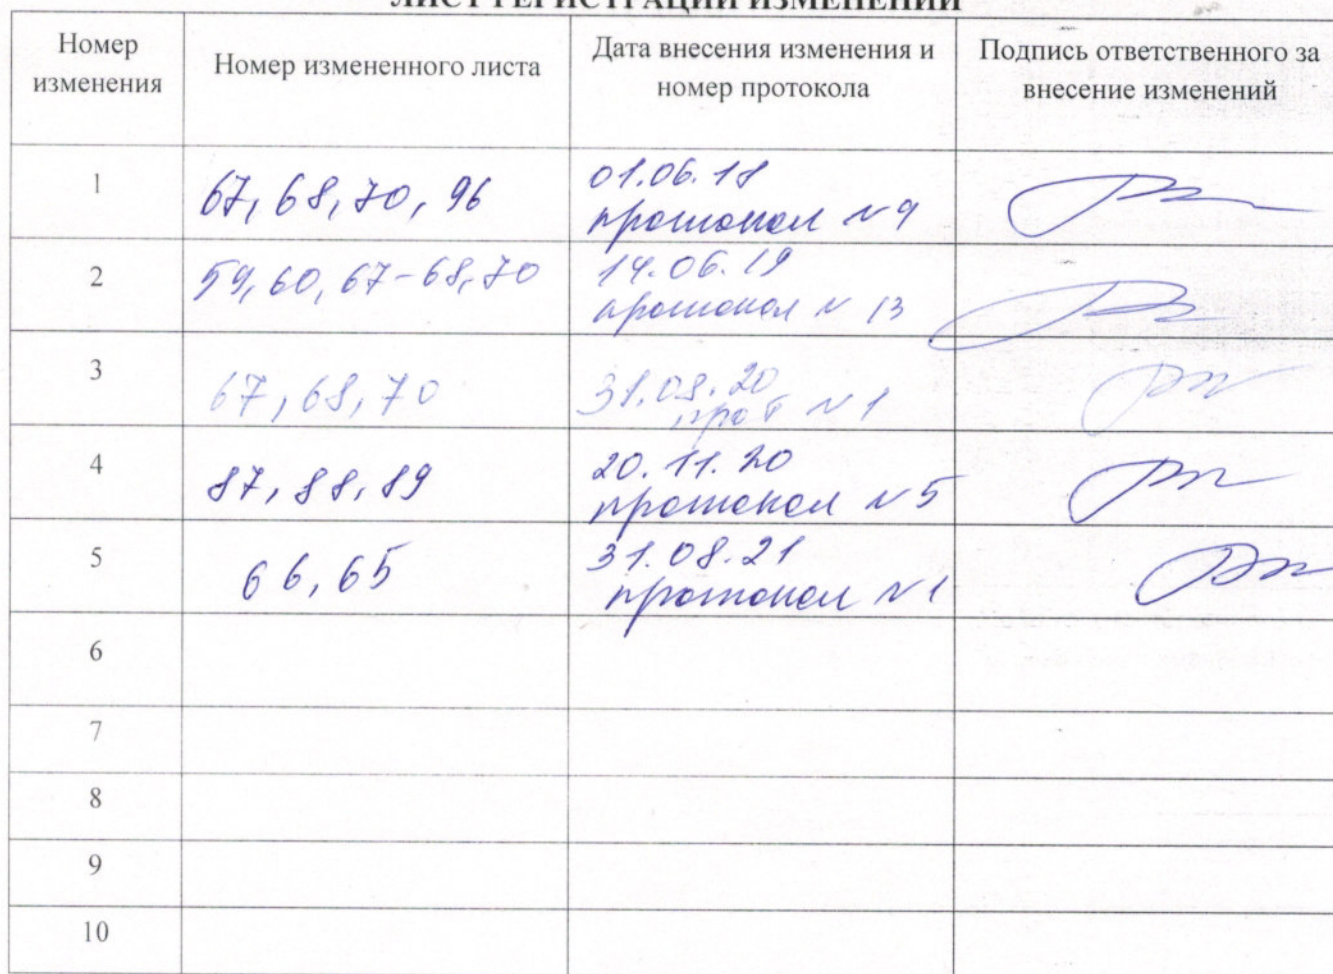 ЛИСТ РЕГИСТРАЦИИ ИЗМЕНЕНИЙ
Номер изменения
Номер измененного листа
Дата внесения изменения и номер протокола
Подпись ответственного за внесение изменений
1
67, 68, 70, 96
01.06.18
протокол №9
2
59, 60, 67-68, 70
14.06.19
протокол № 13
3
67, 68, 70
31.08.20
прот №1
4
87, 88, 89
20.11.20
протокол №5
5
66, 65
31.08.21
протокол №1
6
7
8
9
10